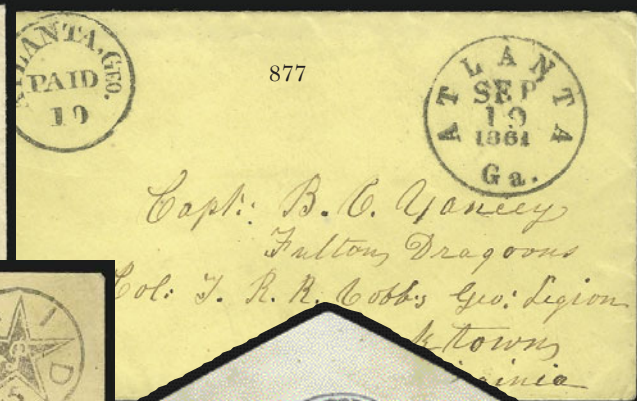 ATLANTA, GEO.
PAID
10
877
ATLANTA
SEP
19
1861
Ga.
Capt: B. C. Yancey
Fulton Dragoons
Col: T. R. R. Cobb's Geo: Legion
ktown
ginia
I
D